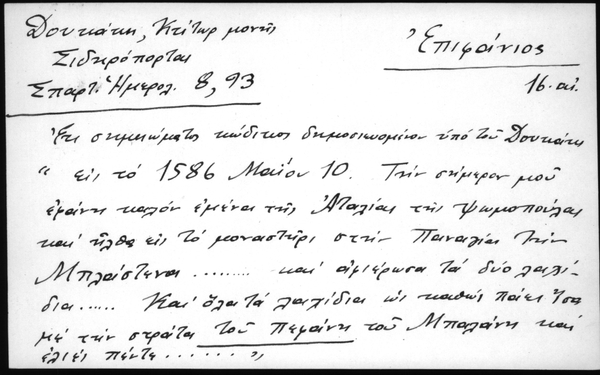 Δουκάκη, Κτίτωρ μονῆς
Σιδηρόπορτας
Σπαρτ. Ἡμερολ. 8, 93
Ἐπιφάνιος
16. αἰ.
Ἐκ σημειώματος κώδικος δημοσιευομένου ὑπό τοῦ Δουκάκη
“ εἰς τό 1586 Μαΐου 10. Τήν σήμερον μοῦ
ἐφάνη καλόν ἐμένα τῆς Ἀταλίας τῆς Ψωμοπούλας
καί ἦλθα εἰς τό μοναστῆρι στήν Παναγία τήν
Μπλάστενα ......... καί ἀφιέρωσα τά δύο λαχί-
δια ..... Καί ὅλα τά λαχίδια ὡς καθώς πάει ἴσα
μέ τήν στράτα τοῦ Πεφάνη τοῦ Μπαλάνη καί
ἐλιές πέντε ...... „